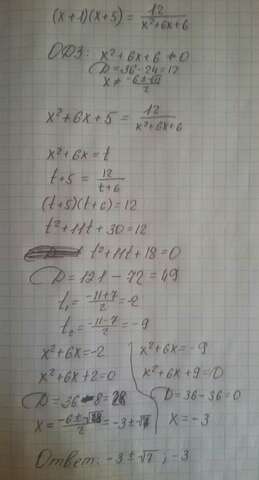 (x+1)(x+5) = 12/(x²+6x+6)
ОДЗ: x²+6x+6 ≠ 0
D = 36-24 = 12
x ≠ (-6±√12)/2
x²+6x+5 = 12/(x²+6x+6)
x²+6x = t
t+5 = 12/(t+6)
(t+5)(t+6) = 12
t²+11t+30 = 12
t²+11t+18 = 0
D = 121-72 = 49
t₁ = (-11+7)/2 = -2
t₂ = (-11-7)/2 = -9
x²+6x = -2
x²+6x+2 = 0
D = 36-8 = 28
x = (-6±√28)/2 = -3±√7
x²+6x = -9
x²+6x+9 = 0
D = 36-36 = 0
x = -3
Ответ: -3±√7; -3